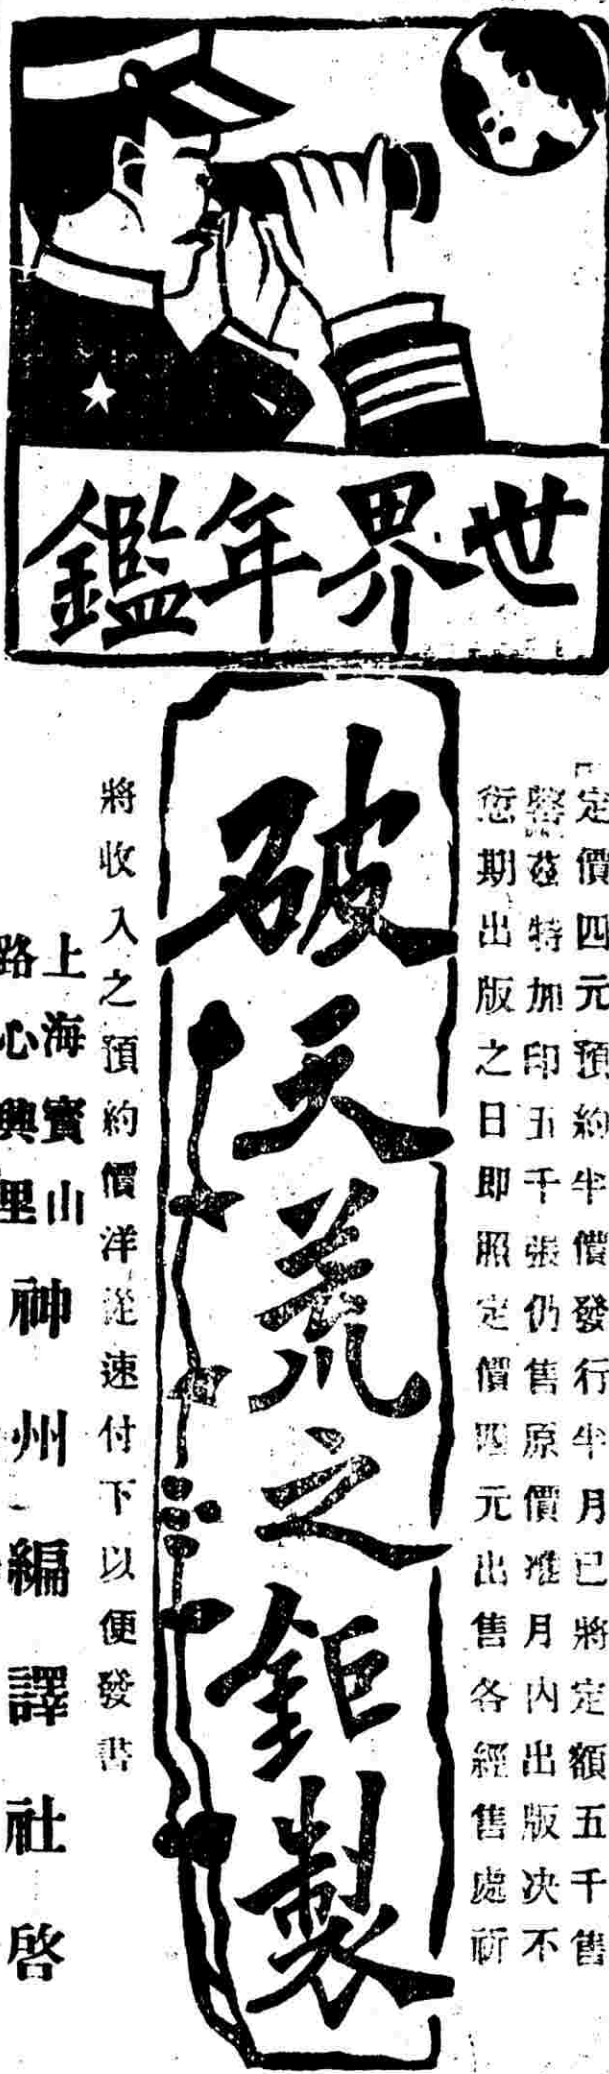 世界年鑑
定價四元預約半價發行半月已將定額五千售
罄茲特加印五千張仍售原價准月內出版决不
愆期出版之日即照定價四元出售各經售處祈
破天荒之鉅製
將收入之預約價洋從速付下以便發書
上海寶山
路心興里
神州編譯社啓